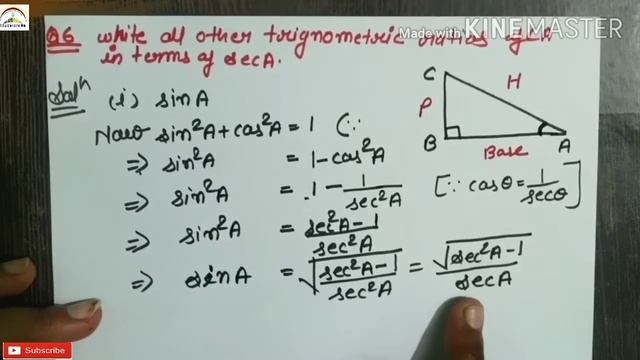 Q6 White all other trignometric ratios of ∠A
in terms of secA.
Made with KINEMASTER
Solⁿ (i) sinA
Now sin²A + cos²A = 1 (∵
⇒ sin²A = 1 - cos²A
⇒ sin²A = 1 - 1/sec²A
[∵ cosθ = 1/secθ]
⇒ sin²A = sec²A - 1/sec²A
⇒ sinA = √(sec²A - 1/sec²A) = √(sec²A - 1)/secA
C
H
P
B
A
Base
Subscribe